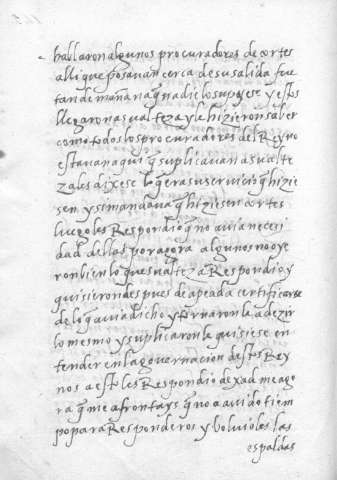 hallaron algunos procuradores de cortes
alli que posavan cerca de su salida fue
tan de mañana q̃ nadie lo supiese y estos
llegaron a su alteza y le hizieron saber
como todos los procuradores del Reyno
estavan aqui q̃ suplicavan a su alte
za les dixese lo q̃ era su servicio q̃ hizie
sen y si mandava q̃ hiziesen cortes
luego les Respondio q̃ no avia neceσi
dad dellas por agora algunos no oye
ron bien lo que su alteza Respondio y
quisieron despues de apeada certificarse
de lo q̃ avia dicho y tornaron la a dezir
lo mesmo y suplicaron le quisiese en
tender en la governacion destos Rey
nos a esto les Respondio dexadme ago
ra q̃ me afrontays q̃ no a avido tiem
po para Responderos y bolvioles las
espaldas